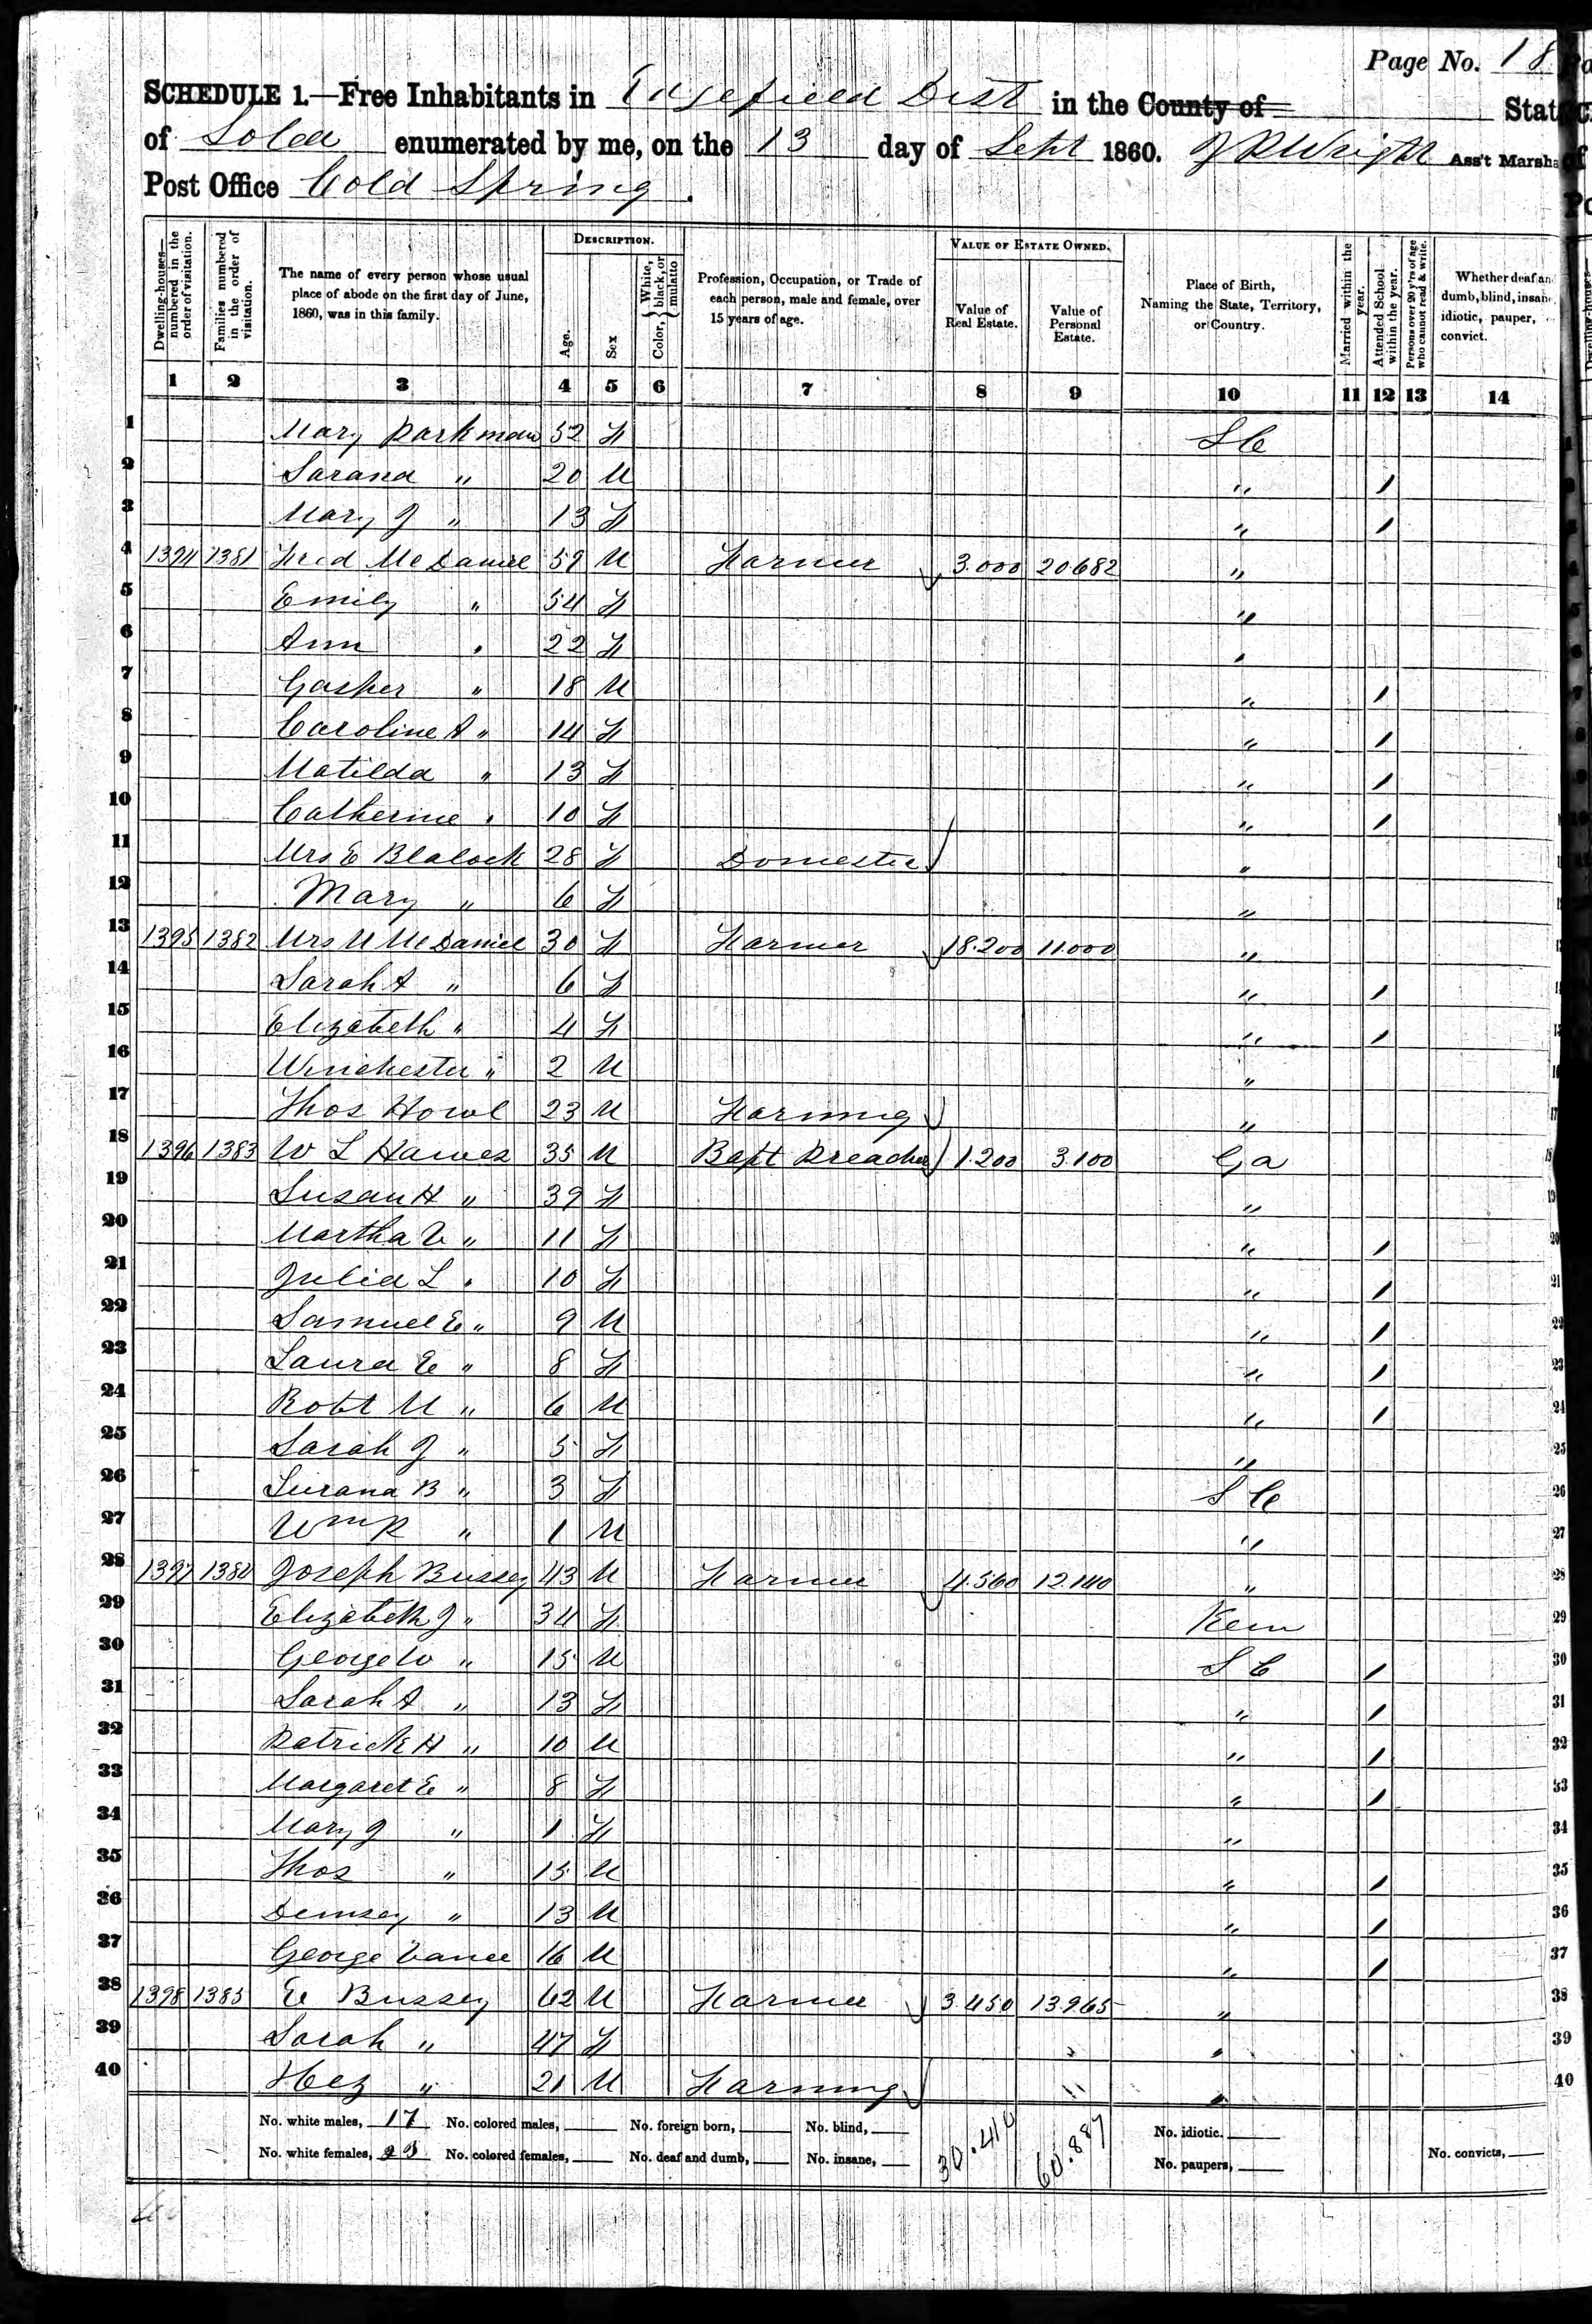 Page No. 18
SCHEDULE 1.—Free Inhabitants in Edgefield Dist in the County of State
of So Ca enumerated by me, on the 13 day of Sept 1860. Ass't Marsha
Post Office Cold Spring.
Dwelling-houses—numbered in the order of visitation.
Families numbered in the order of visitation.
The name of every person whose usual place of abode on the first day of June, 1860, was in this family.
DESCRIPTION.
Age.
Sex
Color, White, black, or mulatto
Profession, Occupation, or Trade of each person, male and female, over 15 years of age.
VALUE OF ESTATE OWNED.
Value of Real Estate.
Value of Personal Estate.
Place of Birth, Naming the State, Territory, or Country.
Married within the year.
Attended School within the year.
Persons over 20 y'rs of age who cannot read & write.
Whether deaf and dumb, blind, insane, idiotic, pauper, convict.
1 2 3 4 5 6 7 8 9 10 11 12 13 14
1 Mary Parkman 52 F S C
2 20 M " /
3 Mary J " 13 F " /
4 1394 1381 Fred McDaniel 59 M Farmer 3.000 20682 "
5 Emily " 54 F "
6 Ann " 22 F "
7 Gasper " 18 M " /
8 Caroline A " 14 F " /
9 Matilda " 13 F " /
10 Catherine " 10 F " /
11 Mrs E Blalock 28 F Domestic "
12 Mary " 6 F "
13 1395 1382 Mrs M McDaniel 30 F Farmer 18.200 11.000 "
14 Sarah A " 6 F " /
15 Elizabeth " 4 F " /
16 Winchester " 2 M "
17 Thos Howl 23 M Farming "
18 1396 1383 W L Hawes 35 M Bapt Preacher 1.200 3.100 Ga
19 Susan H " 39 F "
20 Martha V " 11 F " /
21 Julia L " 10 F " /
22 Samuel E " 9 M " /
23 Laura E " 8 F " /
24 Robt M " 6 M " /
25 Sarah J " 5 F "
26 Lurana B " 3 F S C
27 Wm R " 1 M "
28 1397 1384 Joseph Bussey 43 M Farmer 4.560 12.140 "
29 Elizabeth J " 34 F
30 George W " 15 M S C /
31 Sarah A " 13 F " /
32 Patrick H " 10 M " /
33 Margaret E " 8 F " /
34 Mary J " 1 F "
35 Thos " 15 M " /
36 Demsey " 13 M " /
37 George Vance 16 M " /
38 1398 1385 E Bussey 62 M Farmer 3.450 13.965 "
39 Sarah " 47 F "
40 Hez " 21 M Farming "
No. white males, 17 No. colored males, No. foreign born, No. blind, 30.410 60.887 No. idiotic.
No. white females, 23 No. colored females, No. deaf and dumb, No. insane, No. paupers, No. convicts,